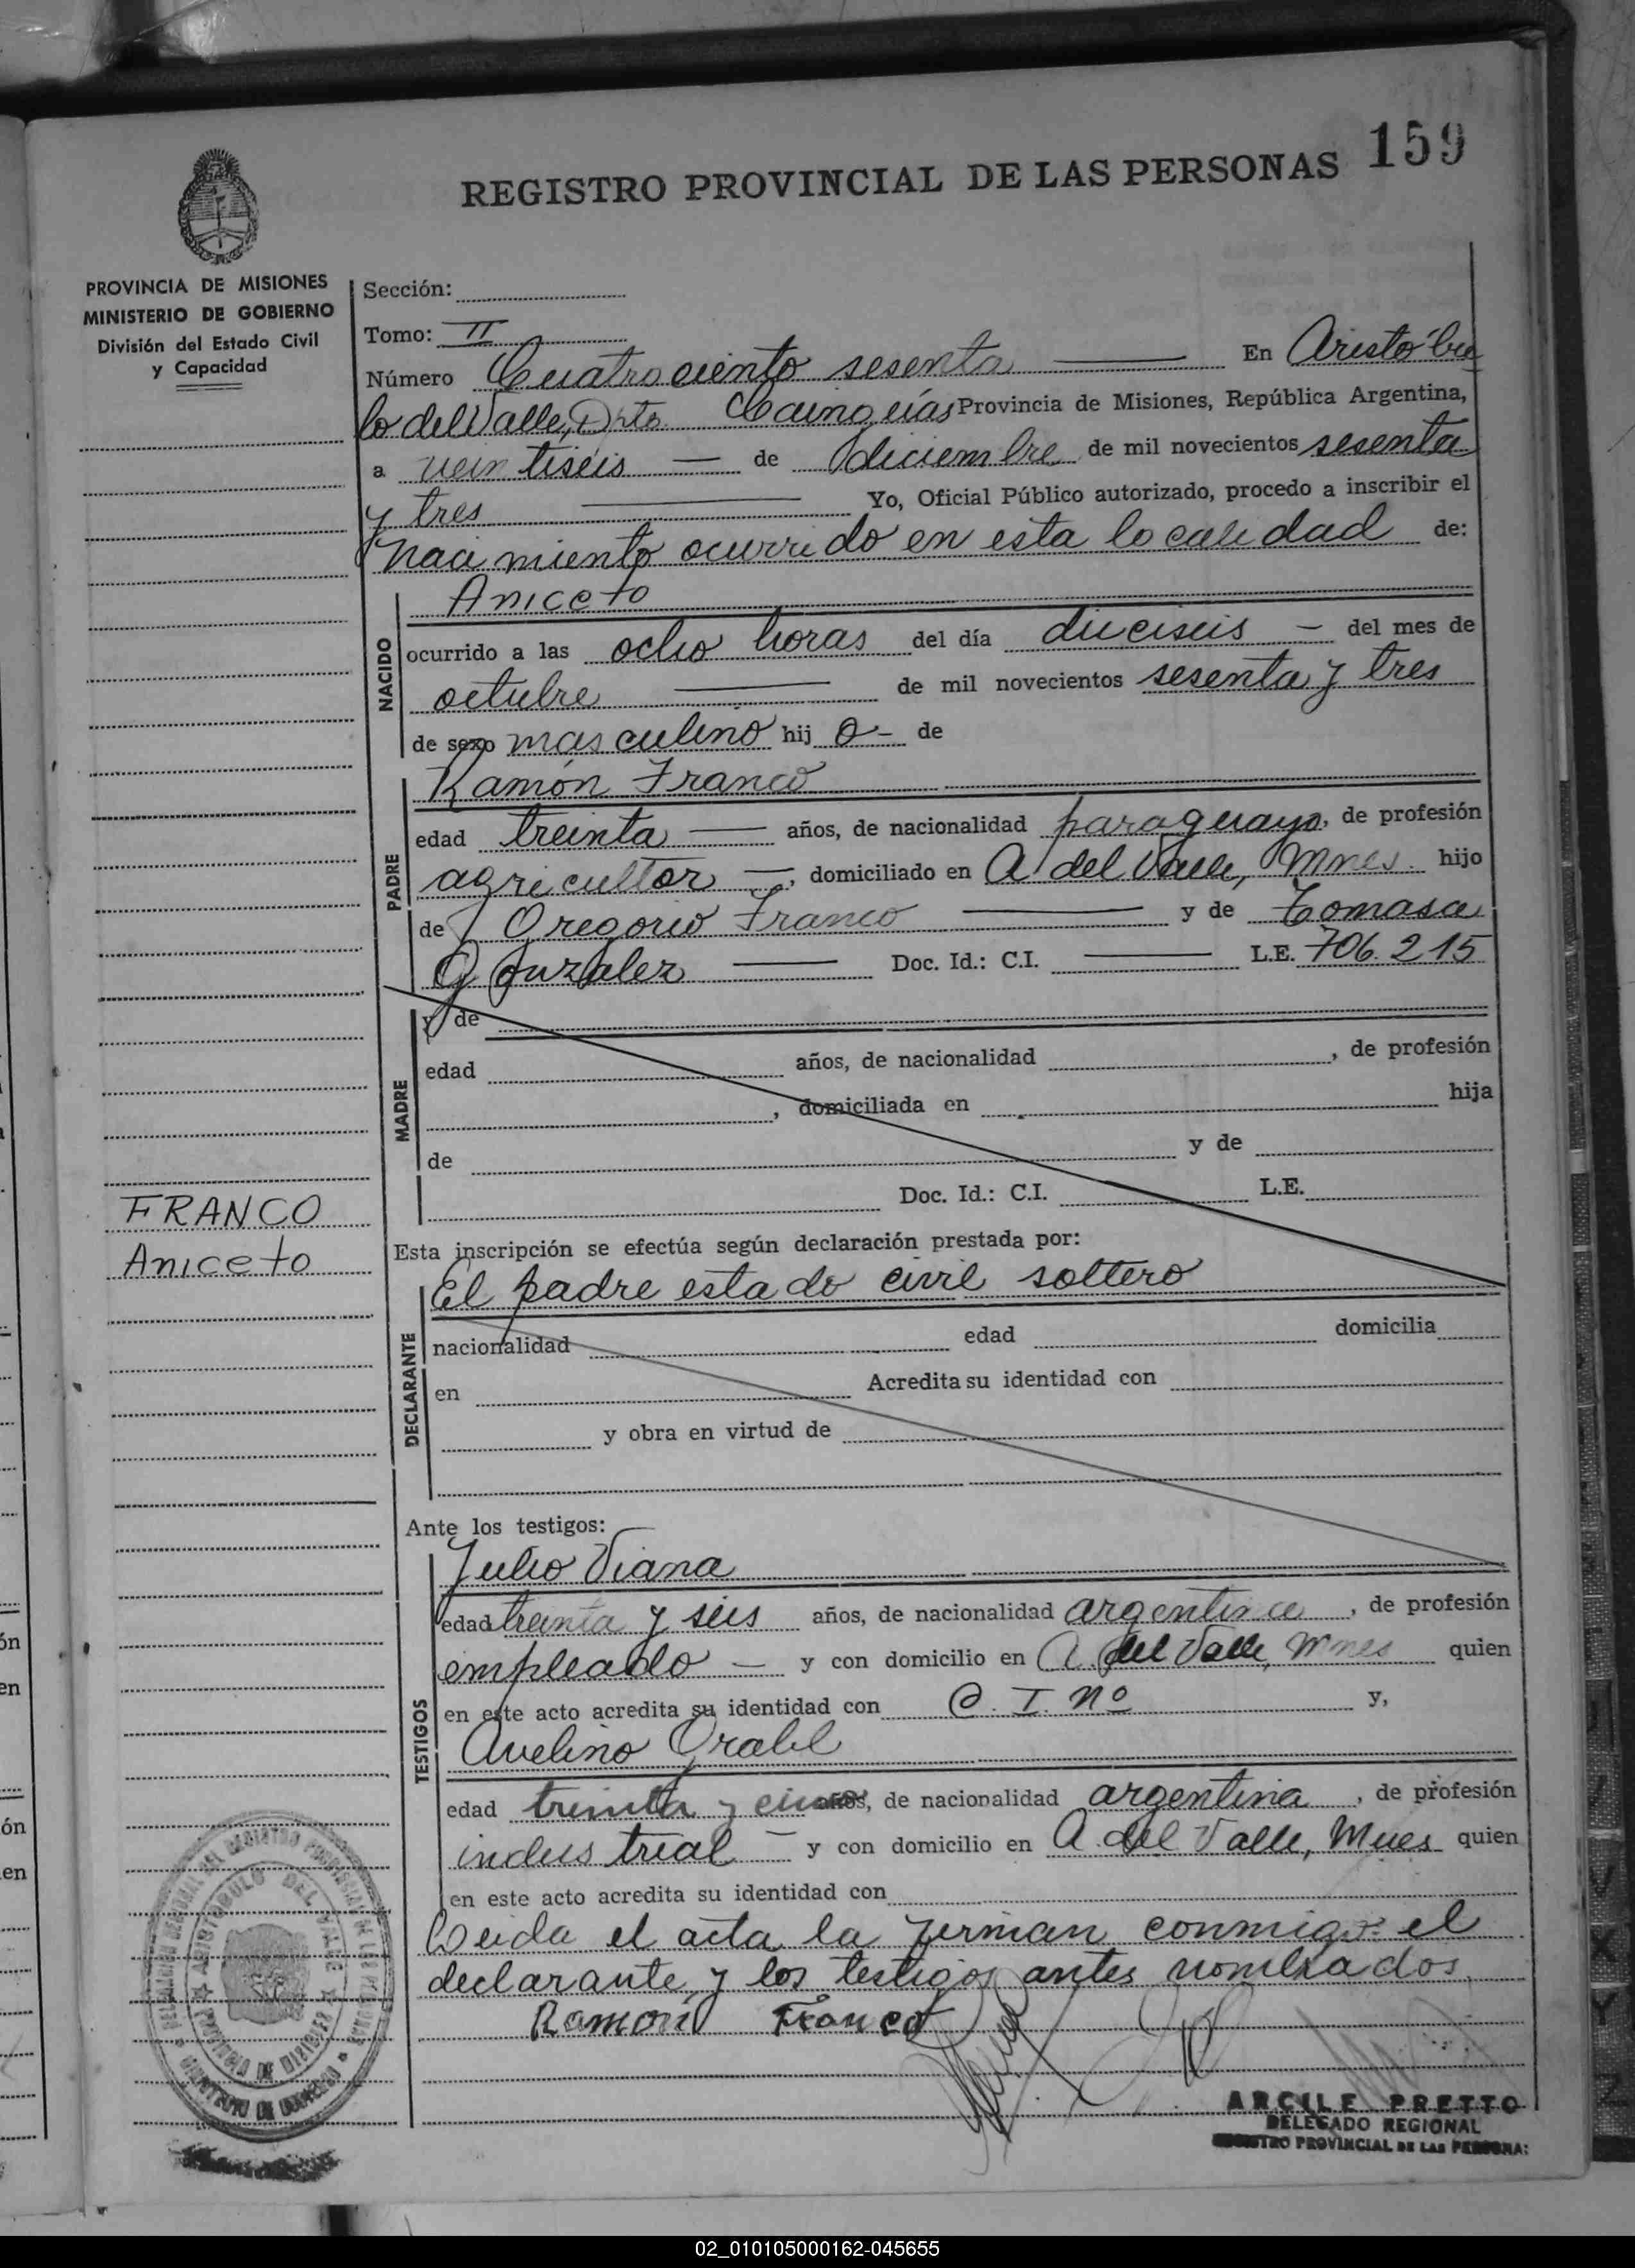 REGISTRO PROVINCIAL DE LAS PERSONAS 159
PROVINCIA DE MISIONES
MINISTERIO DE GOBIERNO
División del Estado Civil
y Capacidad
FRANCO
Aniceto
Sección:
Tomo: II
Número Cuatrociento sesenta En Aristóbu
lo del Valle, Dpto. Cainguás Provincia de Misiones, República Argentina,
a veintiséis — de diciembre de mil novecientos sesenta
y tres Yo, Oficial Público autorizado, procedo a inscribir el
nacimiento ocurrido en esta localidad de:
NACIDO
Aniceto
ocurrido a las ocho horas del día dieciseis — del mes de
octubre de mil novecientos sesenta y tres
de sexo masculino hij o - de
PADRE
Ramón Franco
edad treinta años, de nacionalidad paraguayo, de profesión
agricultor —, domiciliado en A del Valle, Mnes. hijo
de Gregorio Franco y de Tomasa
Gonzalez Doc. Id.: C.I. L.E. 706.215
MADRE
y de
edad años, de nacionalidad , de profesión
, domiciliada en hija
de y de
Doc. Id.: C.I. L.E.
Esta inscripción se efectúa según declaración prestada por:
DECLARANTE
El padre estado civil soltero
nacionalidad edad domicilia
en Acredita su identidad con
y obra en virtud de
Ante los testigos:
TESTIGOS
Julio Viana
edad treinta y seis años, de nacionalidad argentina, de profesión
empleado — y con domicilio en A. del Valle, Mnes quien
en este acto acredita su identidad con C. I. nº y,
Avelino Grabl
edad treinta y años, de nacionalidad argentina, de profesión
industrial — y con domicilio en A. del Valle, Mnes quien
en este acto acredita su identidad con
Leida el acta la firman conmigo el
declarante y los testigos antes nombrados.
Ramón Franco
ARCILE PRETTO
DELEGADO REGIONAL
REGISTRO PROVINCIAL DE LAS PERSONAS
ARISTOBULO DEL VALLE
PROVINCIA DE MISIONES
MINISTERIO DE GOBIERNO
02_010105000162-045655